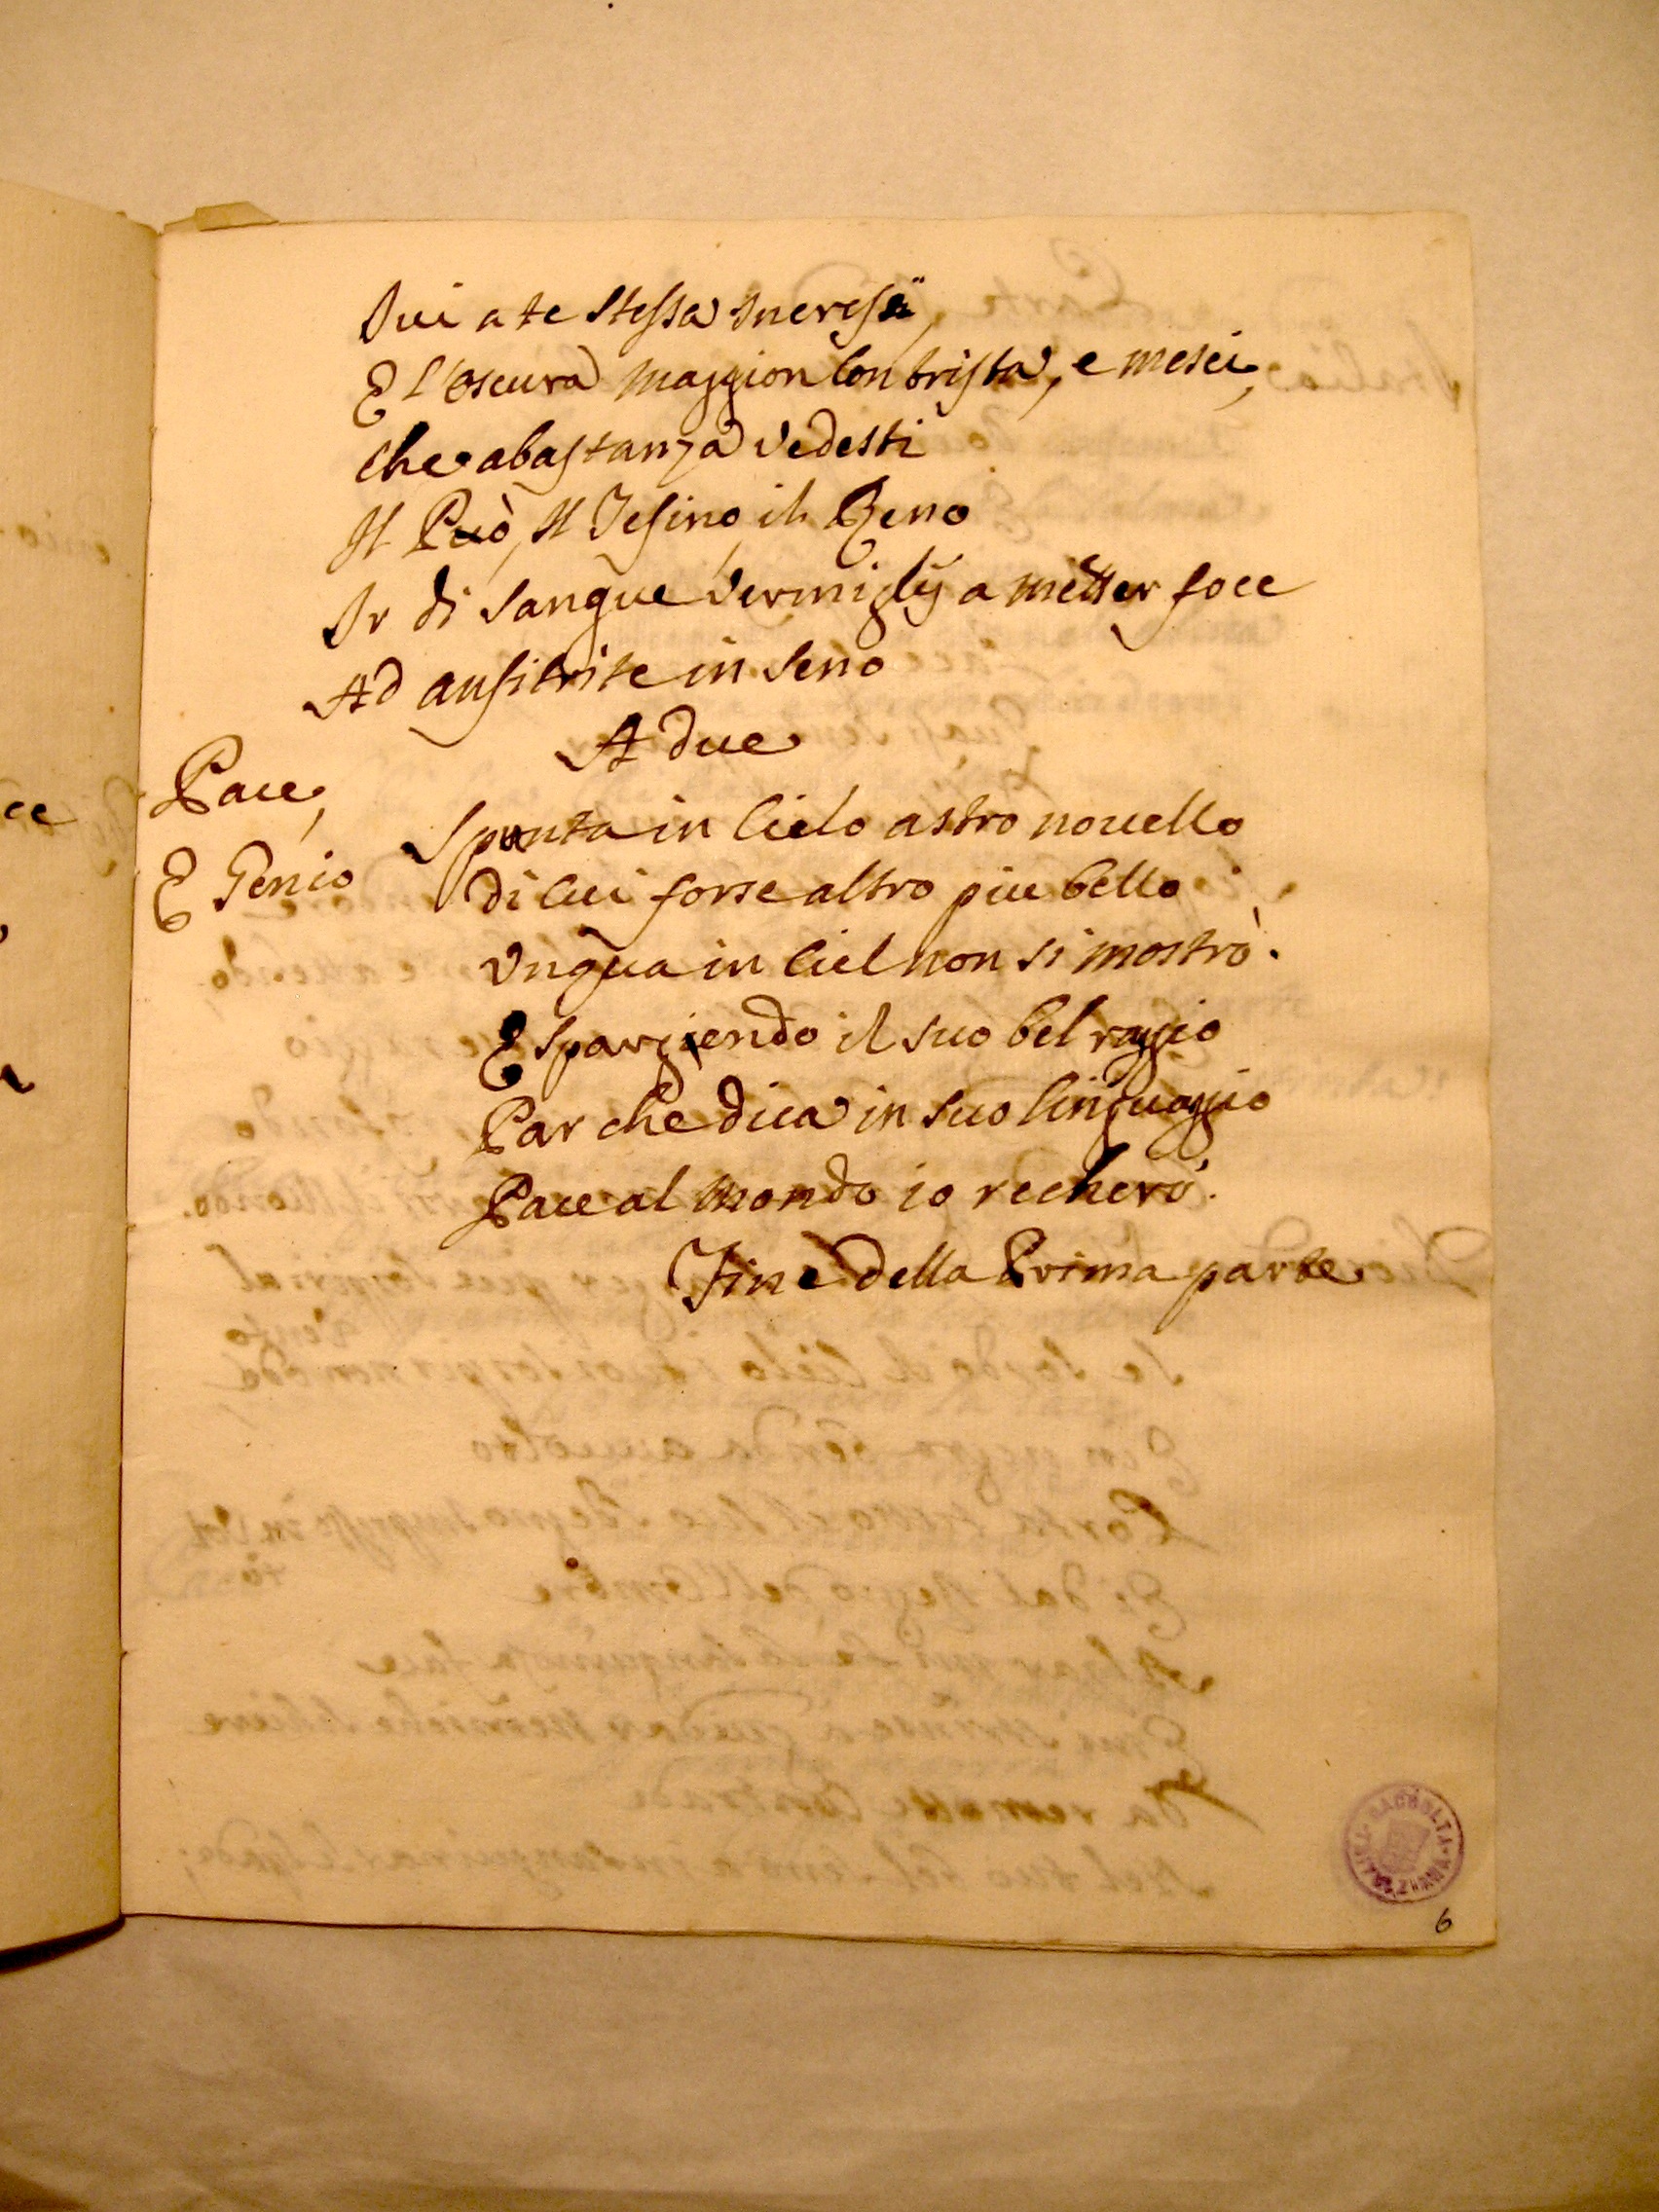 Qui a te stessa
E l'oscura maggior Contrista, e mesci,
Che abastanza vedesti
Il Può, Il Tesino, il Reno
Ir di Sangue Vermiglij a metter foce
Ad anfitrite in Seno
A due
Pace,
E Genio
Spunta in Cielo astro novello
Di Cui forse altro piu bello
Vnqua in Ciel non si mostrò.
E spargiendo il suo bel raggio
Par che dica in suo linguaggio
Pace al Mondo io recherò.
Fine della Prima parte
RACCOLTA
6